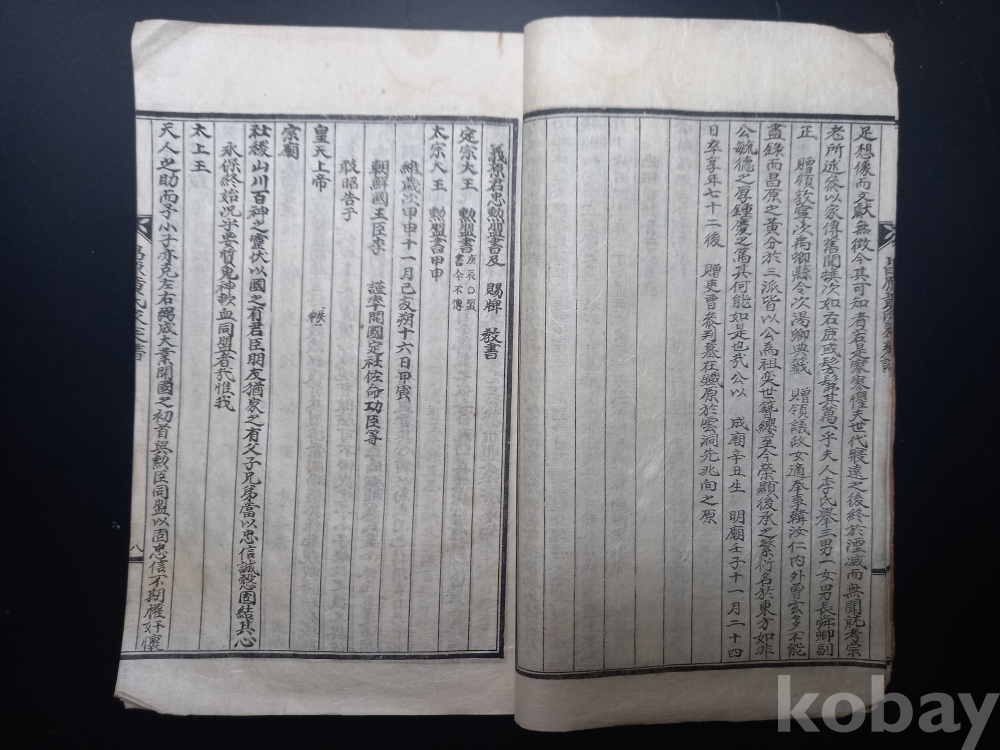 足想像而文獻無徵今其可知者若是寥寥懼夫世代寢遠之後終於湮滅而無聞就考宗
老所述參以家傳舊聞撰次如右庶或髣髴其萬一乎夫人李氏擧三男一女男長舜卿副
正 贈領敦寧次禹卿縣令次湯卿典籤 贈領議政女適奉事韓汝仁內外曾玄多不能
盡錄而昌原之黃分於三派皆以公為祖奕世簪纓至今榮顯後承之繁衍名於東方如非
公毓德之厚鍾慶之篤其何能如是也哉公以 成廟辛丑生 明廟壬子十一月二十四
日卒享年七十二後 贈吏曹參判墓在鐵原於雲洞先兆向之原
義原君忠勲盟書及 賜牌 敎書
定宗大王 勲盟書 庚辰 盟書今不傳
太宗大王 勲盟書甲申
維歲次甲申十一月己亥朔十六日甲寅
朝鮮國王臣李 謹率開國定社佐命功臣等
敢昭告于
皇天上帝
宗廟
社稷山川百神之靈伏以國之有君臣朋友猶家之有父子兄弟當以忠信誠慤固結其心
永保終始況乎要質鬼神歃血同盟者哉惟我
太上王
天人之助而予小子亦克左右弼成大業開國之初首與勲臣同盟以固忠信不期權奸懷
八
kobay